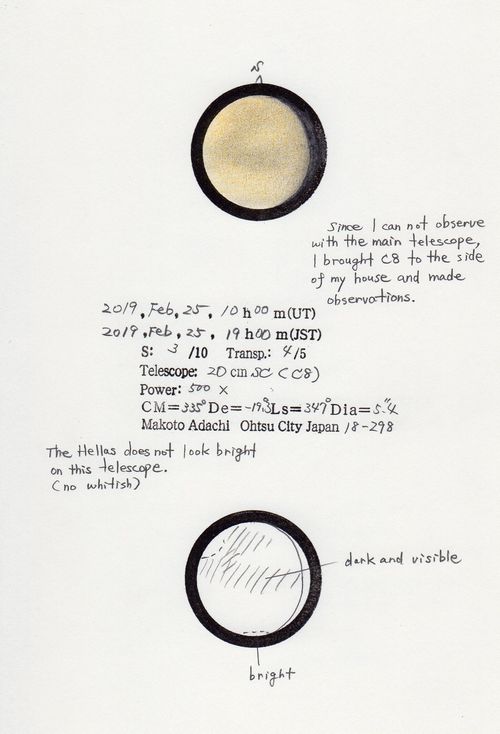 N
Since I can not observe
with the main telescope,
I brought C8 to the side
of my house and made
observations.
2019, Feb, 25, 10 h 00 m(UT)
2019, Feb, 25, 19 h 00 m(JST)
S: 3 /10 Transp.: 4/5
Telescope: 20 cm SC (C8)
Power: 500 ×
CM=335° De=-19.°3 Ls=347° Dia=5."4
Makoto Adachi Ohtsu City Japan 18-298
The Hellas does not look bright
on this telescope.
(no whitish)
dark and visible
bright